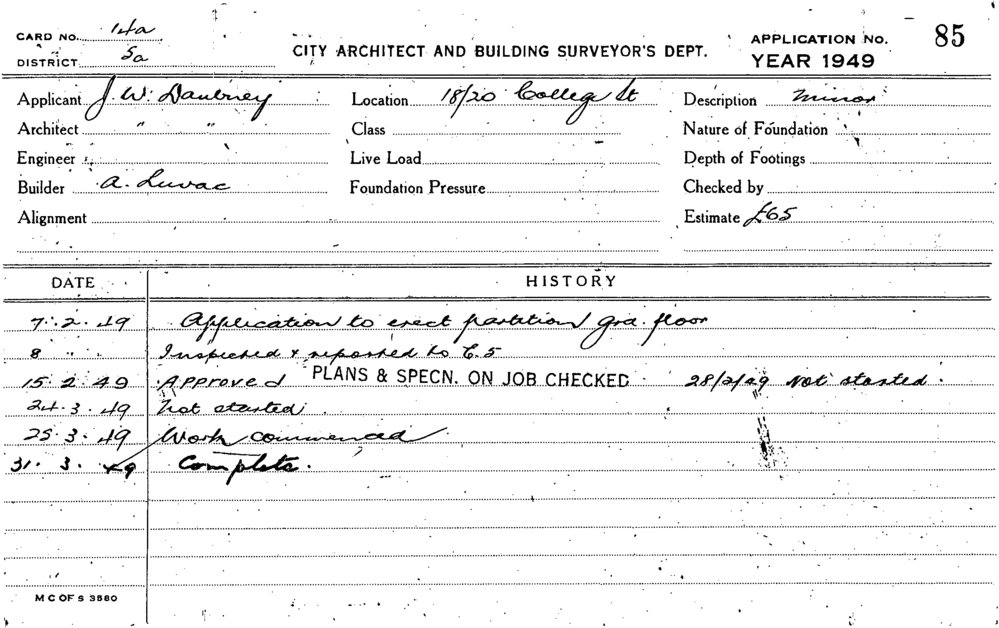 CARD NO. 14a
DISTRICT 5a
CITY ARCHITECT AND BUILDING SURVEYOR'S DEPT.
APPLICATION NO. 85
YEAR 1949
Applicant J. W. Daubney Location 18/20 College St Description Minor
Architect " " Class Nature of Foundation
Engineer Live Load Depth of Footings
Builder A. Luvac Foundation Pressure Checked by
Alignment Estimate £65
DATE HISTORY
7. 2. 49 Application to erect partition grd. floor
8 " " Inspected & reported to C.S
15. 2. 49 Approved PLANS & SPECN. ON JOB CHECKED 28/2/49 Not started.
24. 3. 49 Not started
25. 3. 49 Work commenced
31. 3. 49 Complete.
M C OF S 3580